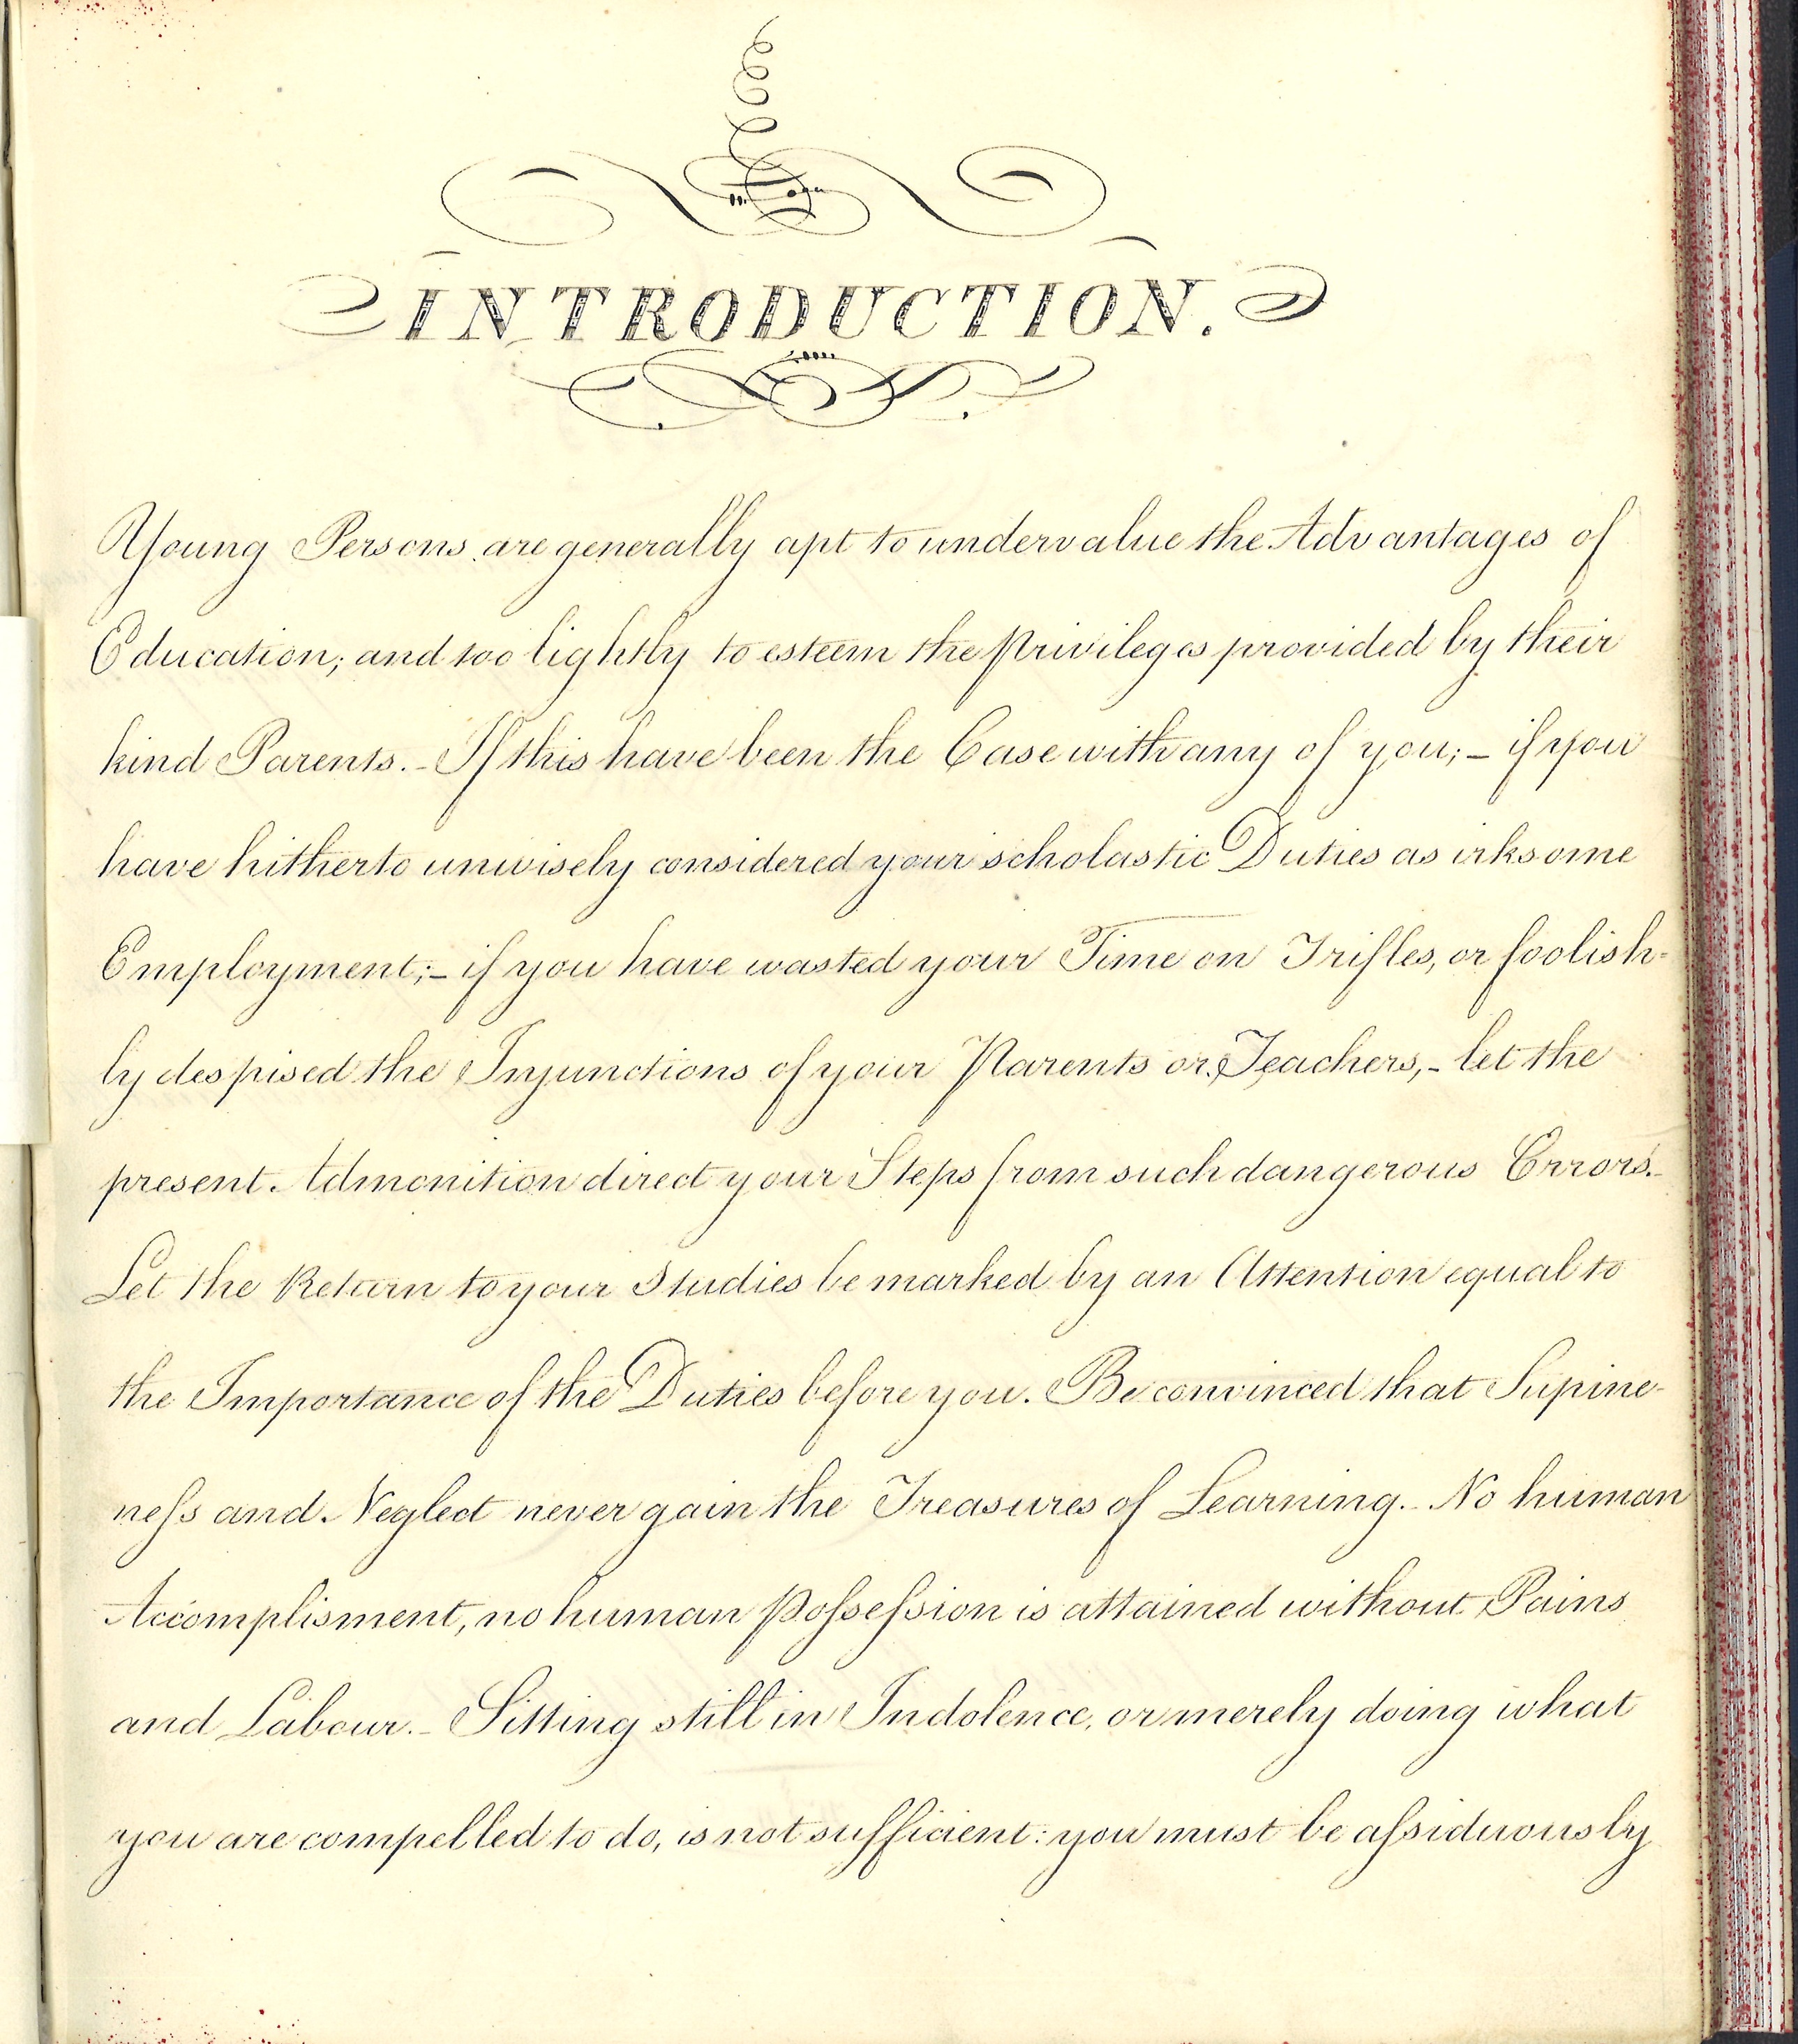 INTRODUCTION.
Young Persons are generally apt to undervalue the Advantages of
Education; and too lightly to esteem the Privileges provided by their
kind Parents. - If this have been the Case with any of you; - if you
have hitherto unwisely considered your scholastic Duties as irksome
Employment; - if you have wasted your Time on Trifles, or foolish-
ly despised the Injunctions of your Parents or Teachers, - let the
present Admonition direct your Steps from such dangerous Errors. -
Let the Return to your Studies be marked by an Attention equal to
the Importance of the Duties before you. Be convinced that Supine-
neſs and Neglect never gain the Treasures of Learning. - No human
Accomplisment, no human Poſseſsion is attained without Pains
and Labour. - Sitting still in Indolence, or merely doing what
you are compelled to do, is not sufficient: you must be aſsiduously